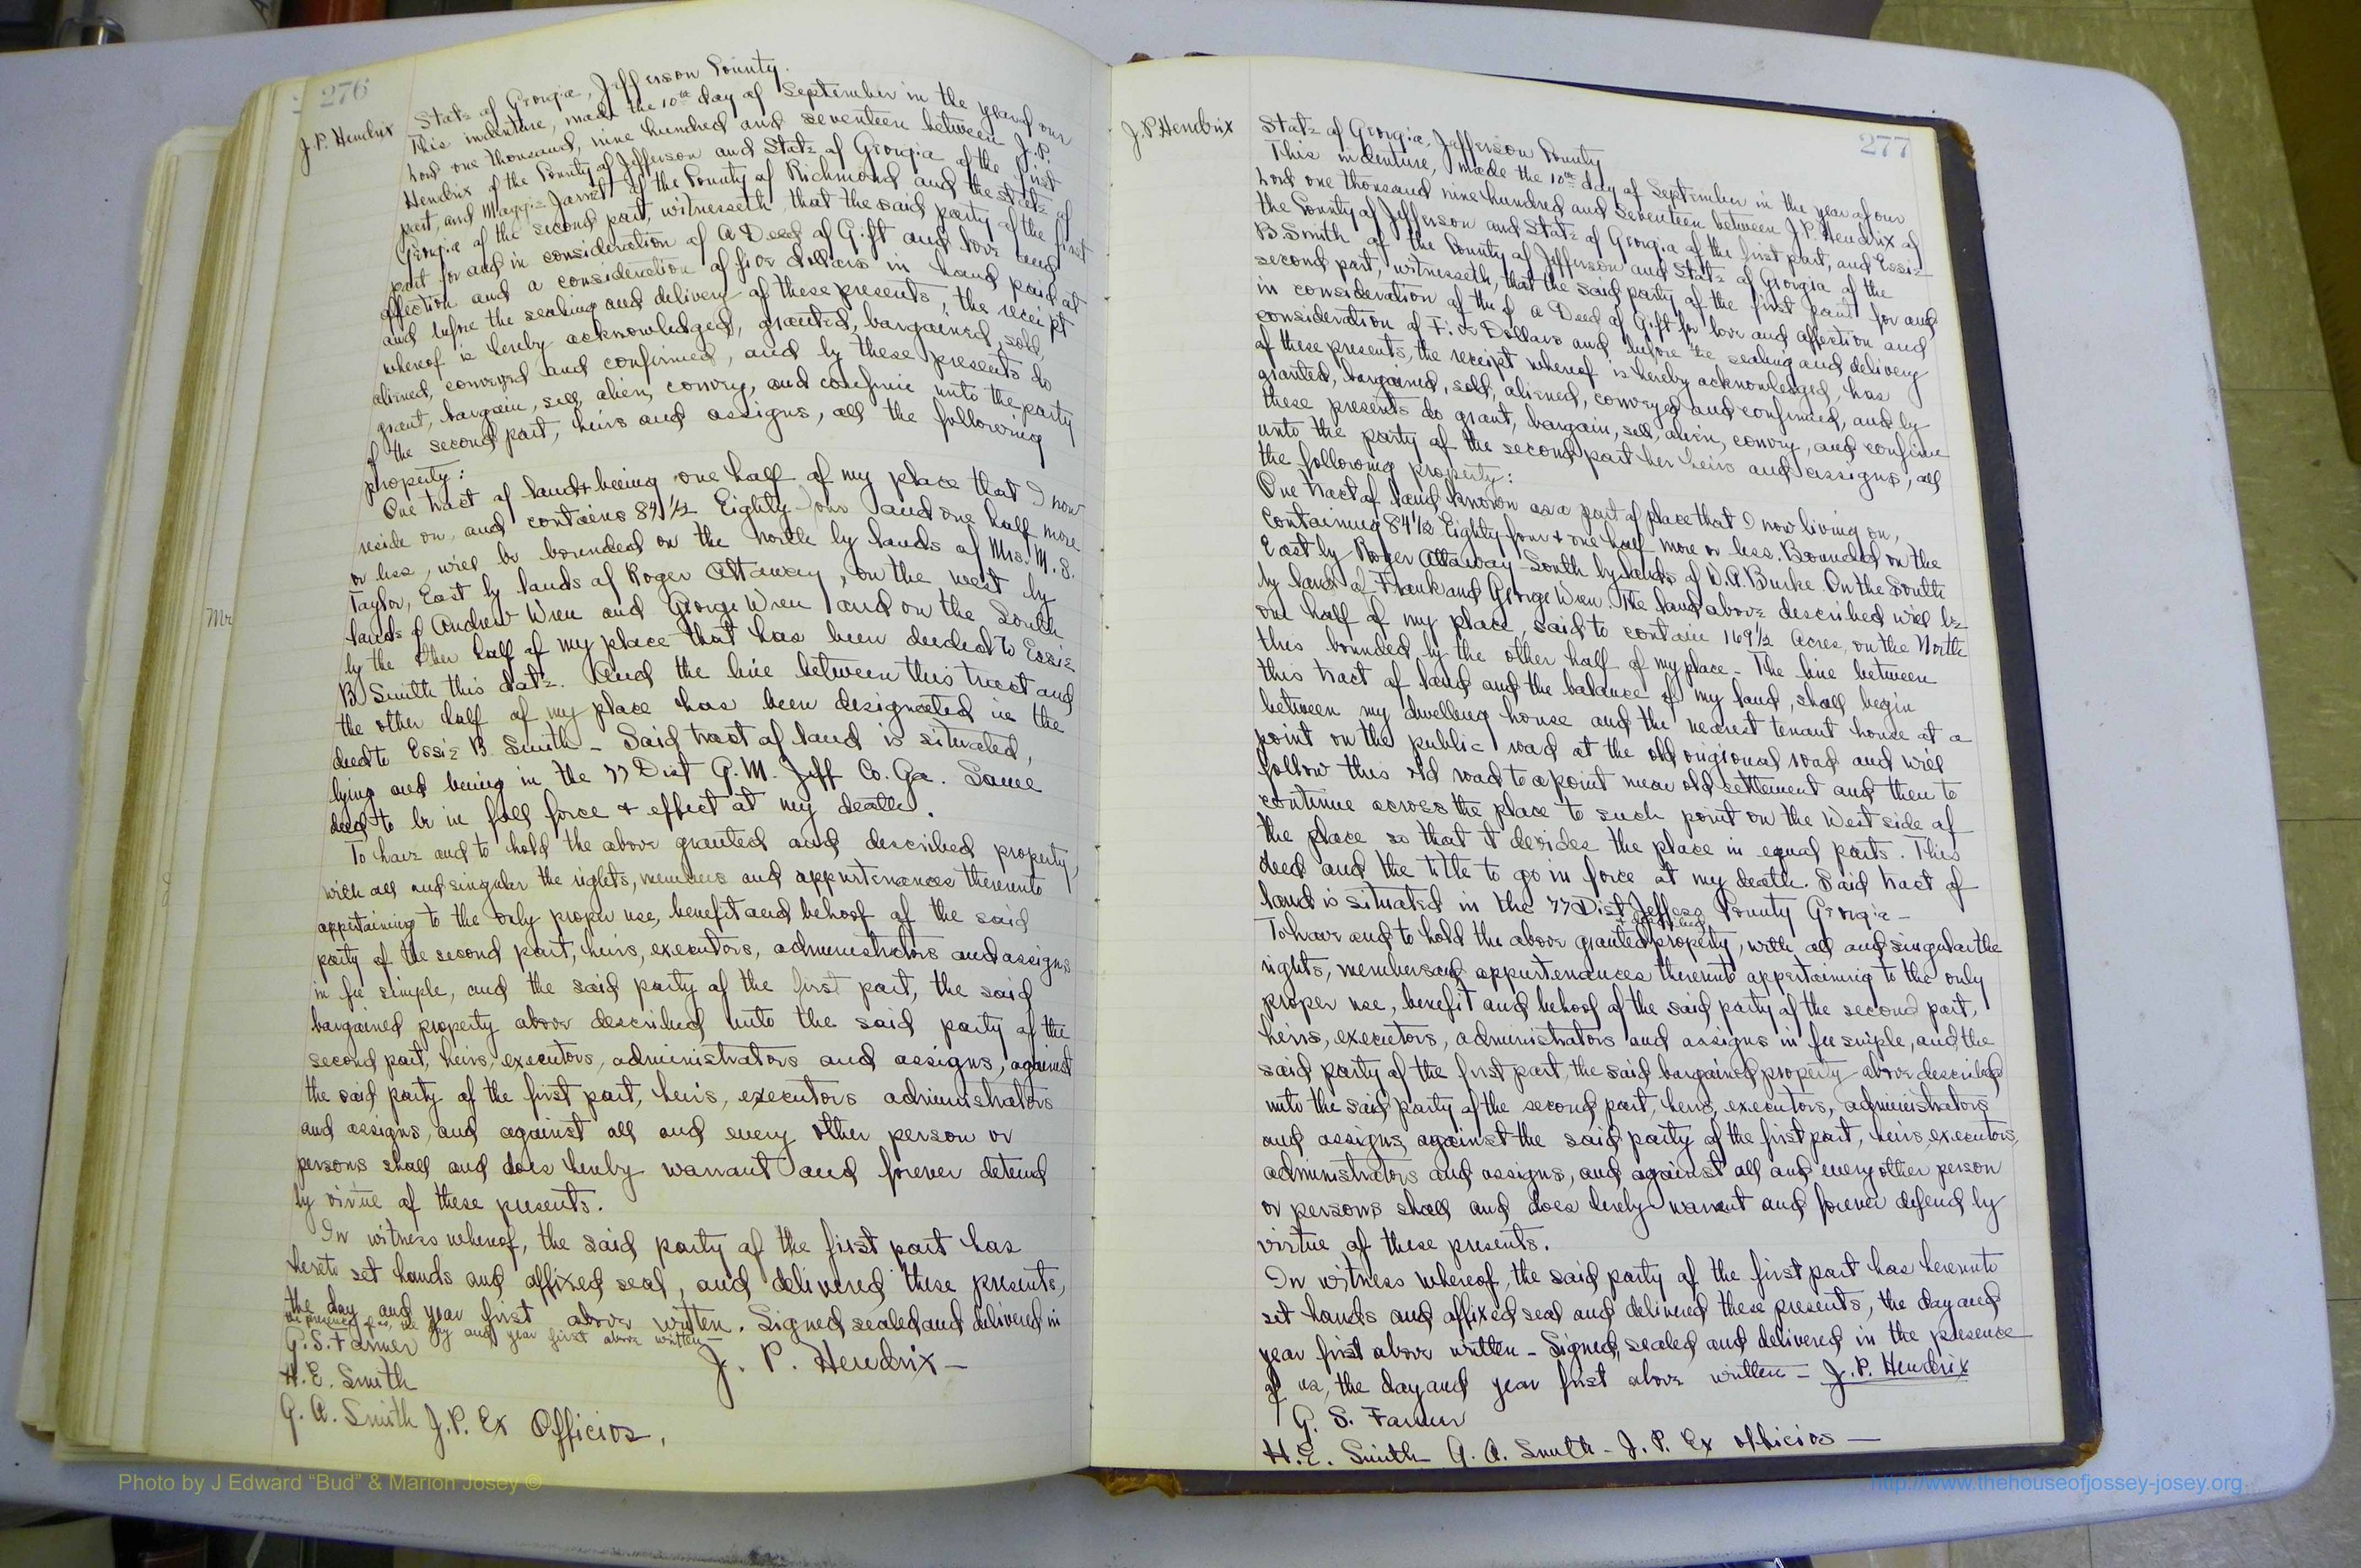 276
J. P. Hendrix
State of Georgia, Jefferson County.
This indenture, made the 10th day of September in the year of our
Lord one thousand, nine hundred and seventeen between J. P.
Hendrix of the County of Jefferson and State of Georgia of the first
part, and Maggie Jarrett of the County of Richmond and the State of
Georgia of the second part, witnesseth, that the said party of the first
part for and in consideration of A Deed of Gift and love and
affection and a consideration of five dollars in hand paid at
and before the sealing and delivery of these presents, the receipt
whereof is hereby acknowledged, granted, bargained, sold,
aliened, conveyed and confirmed, and by these presents do
grant, bargain, sell, alien, convey, and confirm unto the party
of the second part, heirs and assigns, all the following
property:
One tract of land + being one half of my place that I now
reside on, and contains 84 1/2 Eighty four and one half more
or less, will be bounded on the North by lands of Mrs. M. E.
Taylor, East by lands of Roger Attaway, on the west by
lands of Andrew Wren and George Wren and on the South
by the other half of my place that has been deeded to Essie
B Smith this date. And the line between this tract and
the other half of my place has been designated in the
deed to Essie B. Smith - Said tract of land is situated,
lying and being in the 77 Dist G. M. Jeff Co. Ga. Same
deed to be in full force + effect at my death.
To have and to hold the above granted and described property,
with all and singular the rights, members and appurtenances thereunto
appertaining to the only proper use, benefit and behoof of the said
party of the second part, heirs, executors, administrators and assigns
in fee simple, and the said party of the first part, the said
bargained property above described unto the said party of the
second part, heirs, executors, administrators and assigns, against
the said party of the first part, heirs, executors administrators
and assigns, and against all and every other person or
persons shall and does hereby warrant and forever defend
by virtue of these presents.
In witness whereof, the said party of the first part has
hereto set hands and affixed seal, and delivered these presents,
the day and year first above written. Signed sealed and delivered in
the presence of us, the day and year first above written-
G. S. Farmer
J. P. Hendrix -
H. E. Smith
G. A. Smith J. P. Ex Officios,
Mr
277
J. P. Hendrix
State of Georgia, Jefferson County
This indenture, made the 10th day of September in the year of our
Lord one thousand nine hundred and Seventeen between J. P. Hendrix of
the County of Jefferson and State of Georgia of the first part, and Essie
B. Smith of the County of Jefferson and State of Georgia of the
second part, witnesseth, that the said party of the first part for and
in consideration of the of a Deed of Gift for love and affection and
consideration of Five Dollars and before the sealing and delivery
of these presents, the receipt whereof is hereby acknowledged, has
granted, bargained, sold, aliened, conveyed and confirmed, and by
these presents do grant, bargain, sell, alien, convey, and confirm
unto the party of the second part her heirs and assigns, all
the following property:
One tract of land known as a part of place that I now living on,
Containing 84 1/2 Eighty four + one half more or less. Bounded on the
East by Roger Attaway - South by lands of W. A. Burke. On the South
by land of Frank and George Wren. The land above described will be
one half of my place, said to contain 169 1/2 Acres, on the North
this bounded by the other half of my place - The line between
this tract of land and the balance of my land, shall begin
between my dwelling house and the nearest tenant house at a
point on the public road at the old origional road and will
follow this old road to a point near old settlement and then to
continue across the place to such point on the West side of
the place so that it devides the place in equal parts. This
deed and the title to go in force at my death. Said tract of
land is situated in the 77 Dist Jefferso County Georgia -
To have and to hold the above granted property, with all and singular the
rights, members and appurtenances thereunto appertaining to the only
proper use, benefit and behoof of the said party of the second part,
heirs, executors, administrators and assigns in fee simple, and the
said party of the first part, the said bargained property above described
unto the said party of the second part, heirs, executors, administrators
and assigns, against the said party of the first part, heirs, executors,
administrators and assigns, and against all and every other person
or persons shall and does hereby warrant and forever defend by
virtue of these presents.
In witness whereof, the said party of the first part has hereunto
set hands and affixed seal and delivered these presents, the day and
year first above written - Signed, sealed and delivered in the presence
of us, the day and year first above written - J. P. Hendrix
G. S. Farmer
H. E. Smith G. A. Smith - J. P. Ex officios -
Photo by J Edward “Bud” & Marion Josey ©
http://www.thehouseofjossey-josey.org